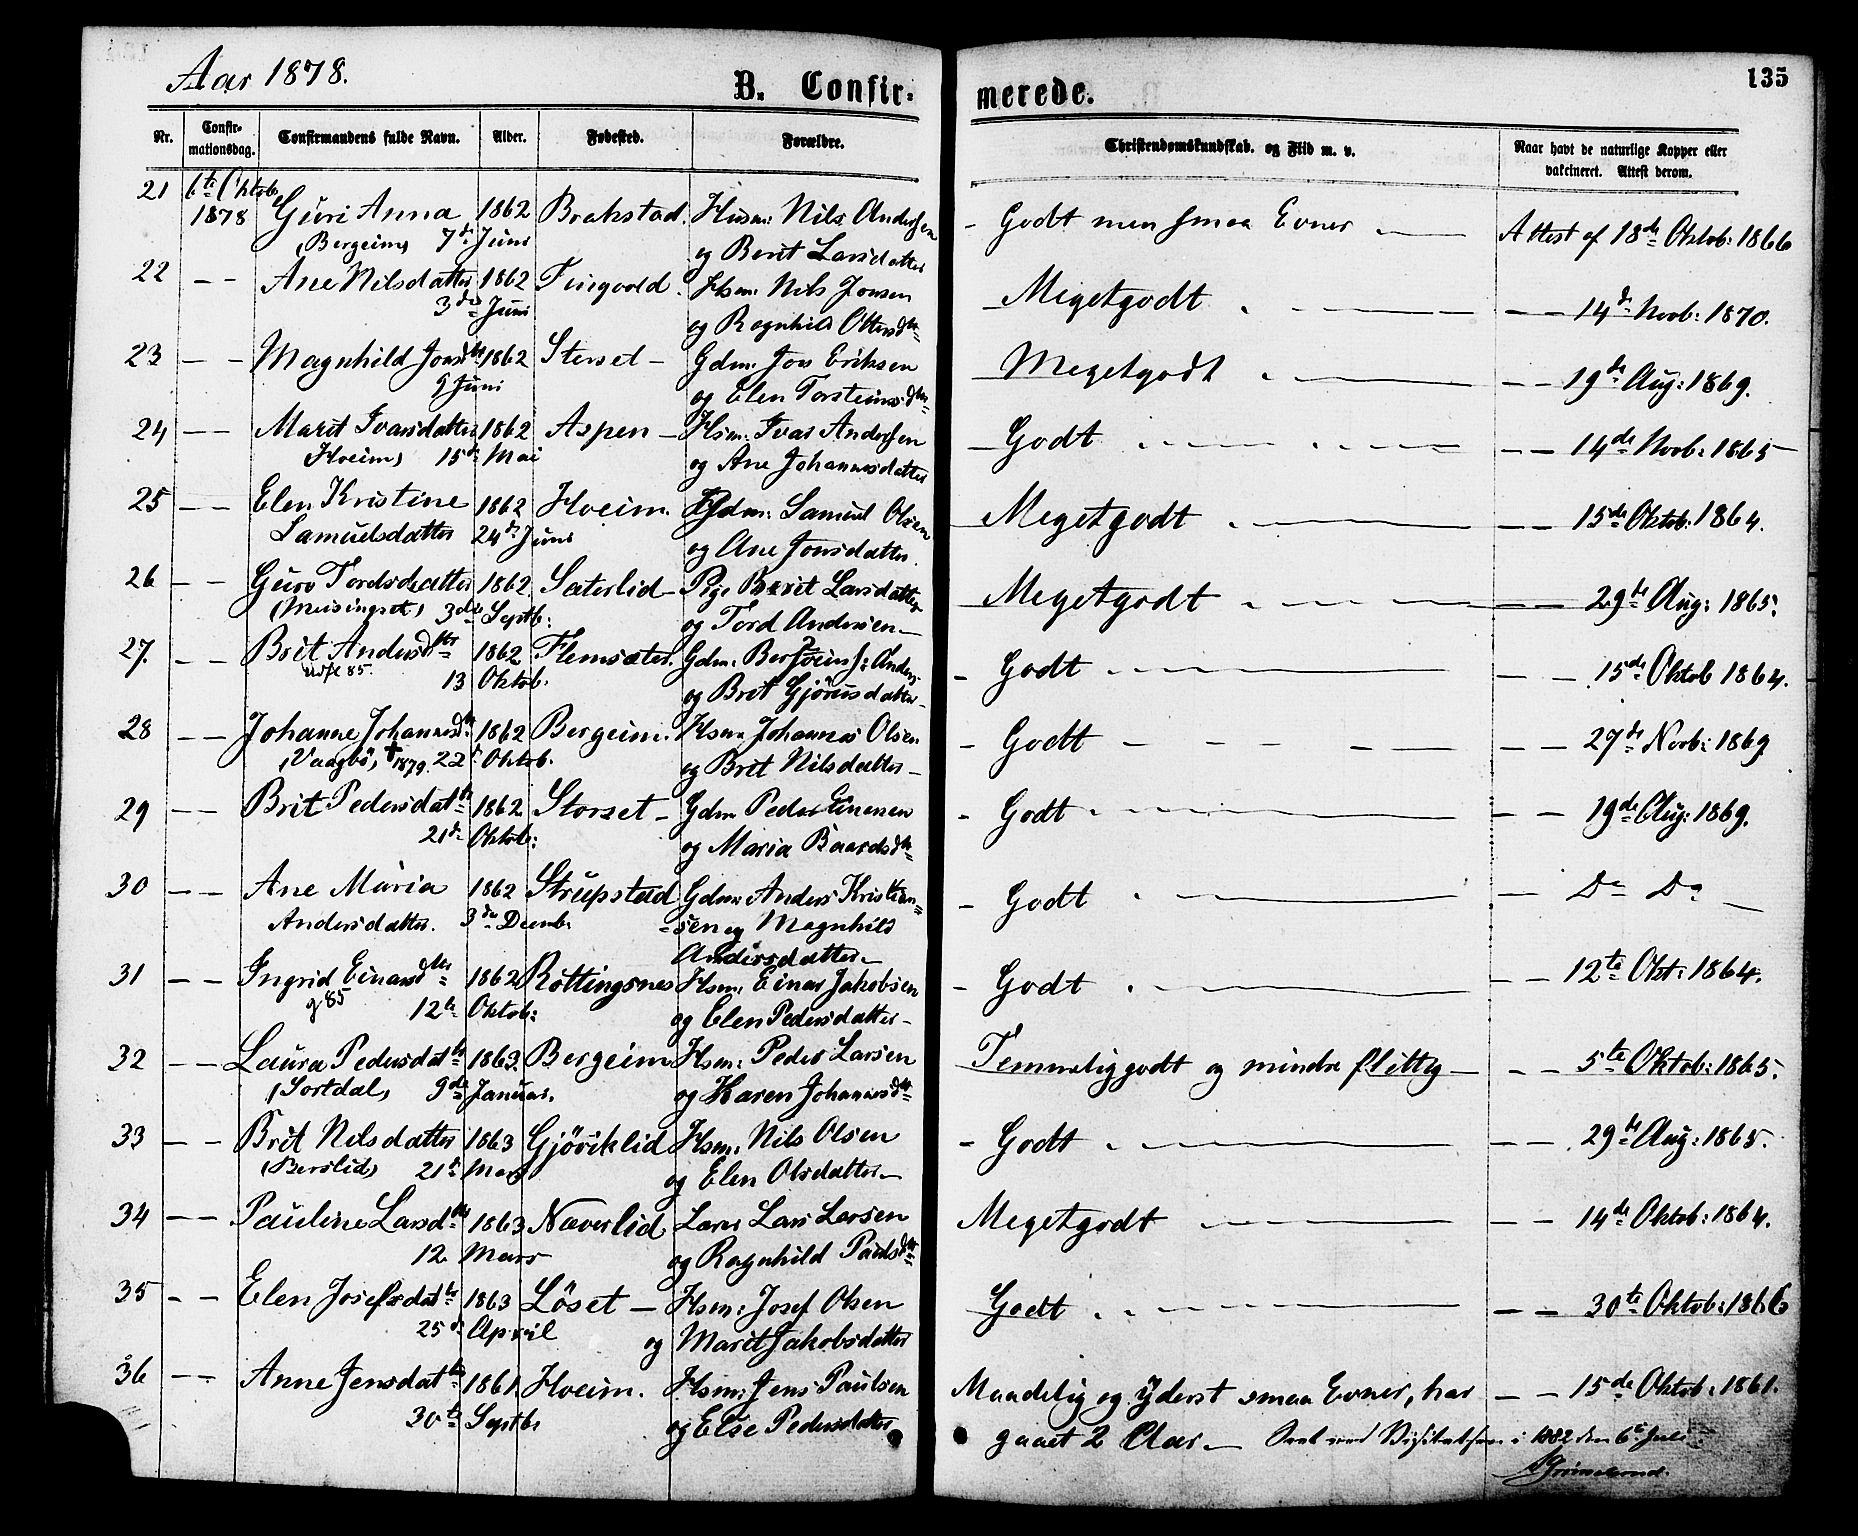 Aar 1878.
B. Confirmerede.
135
Nr. Confirmationsdag. Confirmandens fulde Navn. Alder. Fødested. Forældre. Christendomskundskab. og Flid m. v. Naar havt de naturlige Kopper eller vakcineret. Attest derom.
21 6te Oktob. 1878 Guri Anna 1862 Brakstad. Husm: Nils Andersen - Godt men smaa Evner — Attest af 18de Oktob: 1866
(Bergeim) 7de Juni og Berit Larsdatter
22 - - Ane Nilsdatter 1862 Tingvold. Hsm: Nils Jonsen - Megetgodt - - 14de Novb: 1870.
3die Juni og Ragnhild Olttersdtr
23 - - Magnhild Jonsdtr 1862 Sterset - Gdm: Jon Eriksen - Megetgodt - - 19de Aug: 1869.
9 Juni og Elen Torsteinsdtr
24 - - Marit Ivarsdatter 1862 Aspen - Hsm: Ivar Andersen - Godt - - 14de Novb: 1865
(Hoeim) 15de Mai og Ane Johannesdatter
25 - - Elen Kristine 1862 Hoeim. Gdm: Samuel Olsen - Megetgodt - - 15de Oktob: 1864.
Samuelsdatter 24de Juni og Ane Jonsdatter.
26 - - Guro Tordsdatter 1862 Sæterlid - Pige Berit Larsdatter - Megetgodt - - 29de Aug: 1865.
(Meisingset) 3die Septb: og Tord Andersen -
27. - - Brit Andersdtr 1862 Flemsæter. Gdm: Anders - Godt - - 15de Oktob 1864.
85. 13 Oktob. og Brit Gjörusdatter -
28 - - Johanne Johannesdtr 1862 Bergeim. Hsm Johannes Olsen - Godt - - 27de Novb: 1869
(Vaagbö) † 1879. 22de Oktob. og Brit Nilsdatter -
29 - - Brit Pedersdattr 1862 Storset - Gdm Peder Einersen - Godt - - 19de Aug: 1869.
21de Oktob: og Maria Baardsdtr
30 - - Ane Maria 1862 Strupstad Gdm: Anders Kristian= - Godt - Do Do -
Andersdatter. 3die Decemb. =sen og Magnhild
Andersdatter -
31 - - Ingrid Einarsdtr 1862 Rottingsnes Hsm: Einar Jakobsen - Godt - - 12te Okt: 1864.
g 85 12te Oktob: og Elen Pedersdatter -
32 - - Laura Pedersdattr 1863. Bergeim Hsm: Peder Larsen - Temmeliggodt og mindre flittig - - - 5te Oktob: 1865.
(Sortdal) 9de Januar. og Karen Johannesdtr
33 - - Brit Nilsdatter 1863 Gjöviklid Hsm: Nils Olsen - Godt - - 29de Aug: 1865.
(Berslid) 21de Mars og Elen Olsdatter -
34 - - Pauline Larsdtr 1863 Næverlid Lærer Lars Larsen Megetgodt - - 14de Oktob: 1864.
12 Mars og Ragnhild Paulsdtr
35 - - Elen Josefsdattr 1863 Löset - Hsm: Josef Olsen - Godt - - 30te Oktob: 1866
25de April og Marit Jakobsdatter
36 - - Anne Jensdattr 1861 Hoeim. Hsm: Jens Paulsen Maadelig og yderst smaa Evner, har - - 15de Oktob: 1861.
30te Septb: og Else Pedersdatter gaaet 2 Aar - Seet ved Visitatsen i 1882 den 6te Juli
Grimelund.